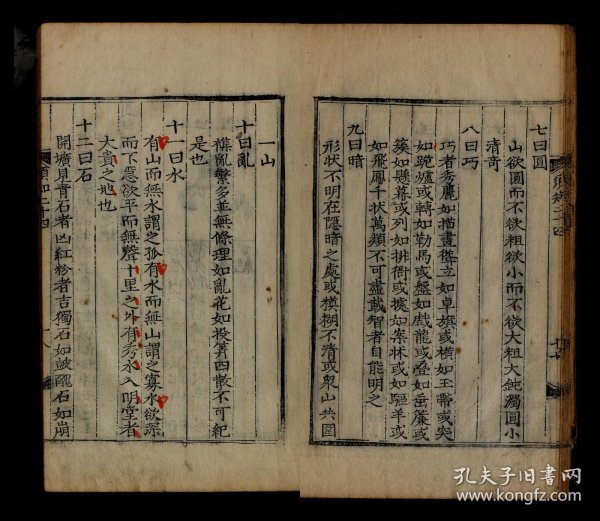 七曰圓
山欲圓而不欲粗欲小而不欲大粗大鈍濁圓小
清奇
八曰巧
巧者秀麗如描畫從立如卓旗或橫如玉帶或尖
如跪爐或轉如勒馬或盤如戲龍或疊如垂簾或
簇如懸幕或列如排衙或擁如案林或如驅羊或
如飛鳳千状萬類不可盡載智者自能明之
九曰暗
形狀不明在隱暗之處或模糊不清或衆山共圍
一山
十曰亂
雜亂繁多並無條理如亂花如投筭四散不可紀
是也
十一曰水
有山而無水謂之孤有水而無山謂之寡水欲深
而下愿欲平而無聲十里之外有秀水入明堂者
大貴之地也
十二曰石
開壙見青石者凶紅粉者吉獨石如皷醒石如崩
孔夫子旧书网
www.kongfz.com